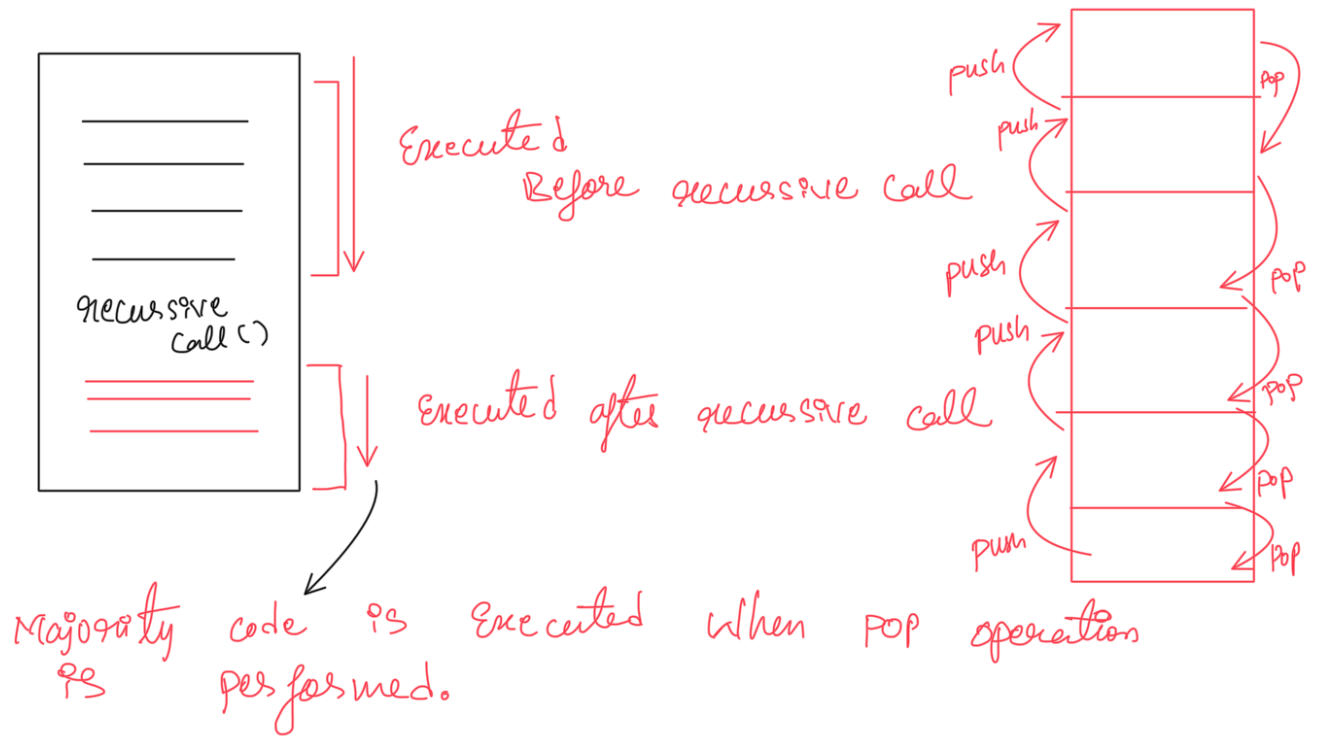 Executed
Before recussive call
recussive
call()
Executed after recussive call
Majority code is Executed when POP operation
is performed.
push
push
push
push
push
POP
POP
POP
POP
POP